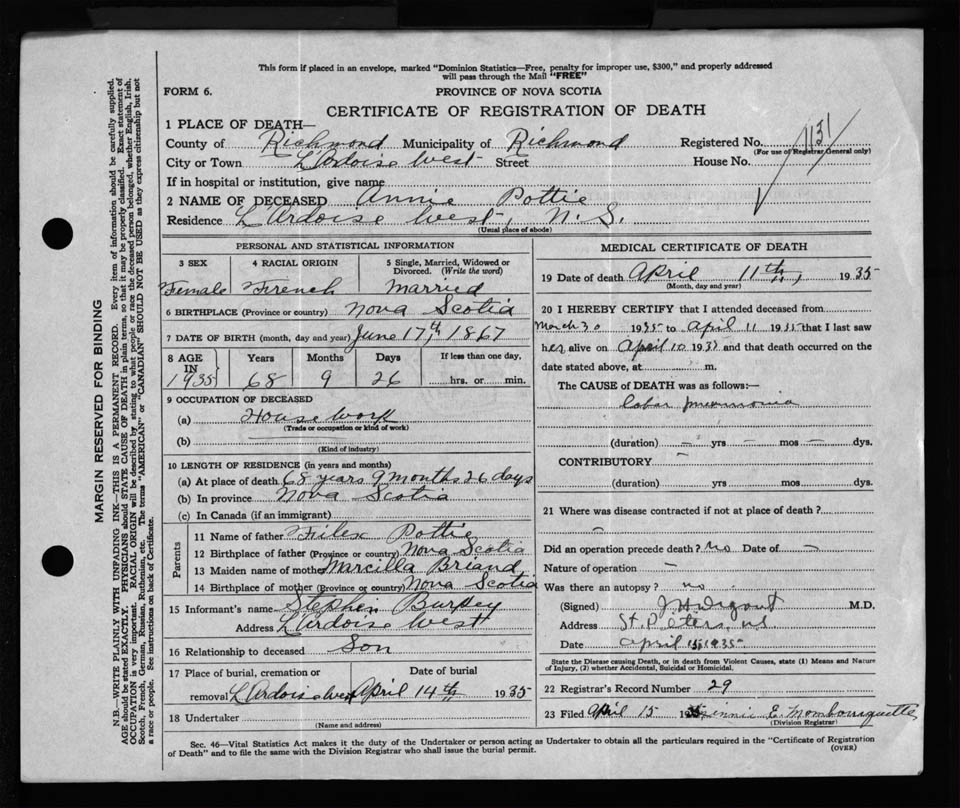 This form if placed in an envelope, marked "Dominion Statistics—Free, penalty for improper use, $300," and properly addressed
will pass through the Mail "FREE"
FORM 6.
PROVINCE OF NOVA SCOTIA
CERTIFICATE OF REGISTRATION OF DEATH
1 PLACE OF DEATH—
County of Richmond Municipality of Richmond Registered No. 1131
(For use of Registrar General only)
City or Town L'Ardoise West Street House No.
If in hospital or institution, give name
2 NAME OF DECEASED Annie Pottie
Residence L'Ardoise West, N.S.
(Usual place of abode)
PERSONAL AND STATISTICAL INFORMATION
3 SEX 4 RACIAL ORIGIN 5 Single, Married, Widowed or
Divorced. (Write the word)
Female French Married
6 BIRTHPLACE (Province or country) Nova Scotia
7 DATE OF BIRTH (month, day and year) June 17th, 1867
8 AGE IN Years Months Days If less than one day,
1935 68 9 26 hrs. or min.
9 OCCUPATION OF DECEASED
(a) House Work
(Trade or occupation or kind of work)
(b)
(Kind of industry)
10 LENGTH OF RESIDENCE (in years and months)
(a) At place of death 68 years 9 months 26 days
(b) In province Nova Scotia
(c) In Canada (if an immigrant)
Parents
11 Name of father Filex Pottie
12 Birthplace of father (Province or country) Nova Scotia
13 Maiden name of mother Marcilla Briand
14 Birthplace of mother (Province or country) Nova Scotia
15 Informant's name Stephen Burpey
Address L'Ardoise West
16 Relationship to deceased Son
17 Place of burial, cremation or Date of burial
removal L'Ardoise West April 14th 1935
18 Undertaker
(Name and address)
MEDICAL CERTIFICATE OF DEATH
19 Date of death April 11th, 1935
(Month, day and year)
20 I HEREBY CERTIFY that I attended deceased from
March 30 1935 to April 11 1935 that I last saw
her alive on April 10 1935 and that death occurred on the
date stated above, at m.
The CAUSE of DEATH was as follows:—
lobar pneumonia
(duration) — yrs — mos — dys.
CONTRIBUTORY —
(duration) yrs mos dys.
21 Where was disease contracted if not at place of death?
—
Did an operation precede death? no Date of —
Nature of operation —
Was there an autopsy? no
(Signed) M.D.
Address St. Peters, N.S.
Date April 1935
State the Disease causing Death, or in death from Violent Causes, state (1) Means and Nature
of Injury, (2) whether Accidental, Suicidal or Homicidal.
22 Registrar's Record Number 29
23 Filed April 15 1935 E. Mombourquette
(Division Registrar)
Sec. 46—Vital Statistics Act makes it the duty of the Undertaker or person acting as Undertaker to obtain all the particulars required in the "Certificate of Registration
of Death" and to file the same with the Division Registrar who shall issue the burial permit. (OVER)
MARGIN RESERVED FOR BINDING
N.B.—WRITE PLAINLY WITH UNFADING INK—THIS IS A PERMANENT RECORD. Every item of information should be carefully supplied.
AGE should be stated EXACTLY. PHYSICIANS should STATE CAUSE OF DEATH in plain terms, so that it may be properly classified. Exact statement of
OCCUPATION is very important. RACIAL ORIGIN will be described by stating to what people or race the deceased person belonged, whether English, Irish,
Scotch, French, German, Russian, Ruthenian, etc. The terms "AMERICAN" or "CANADIAN" SHOULD NOT BE USED as they express citizenship but not
a race or people. See instructions on back of Certificate.